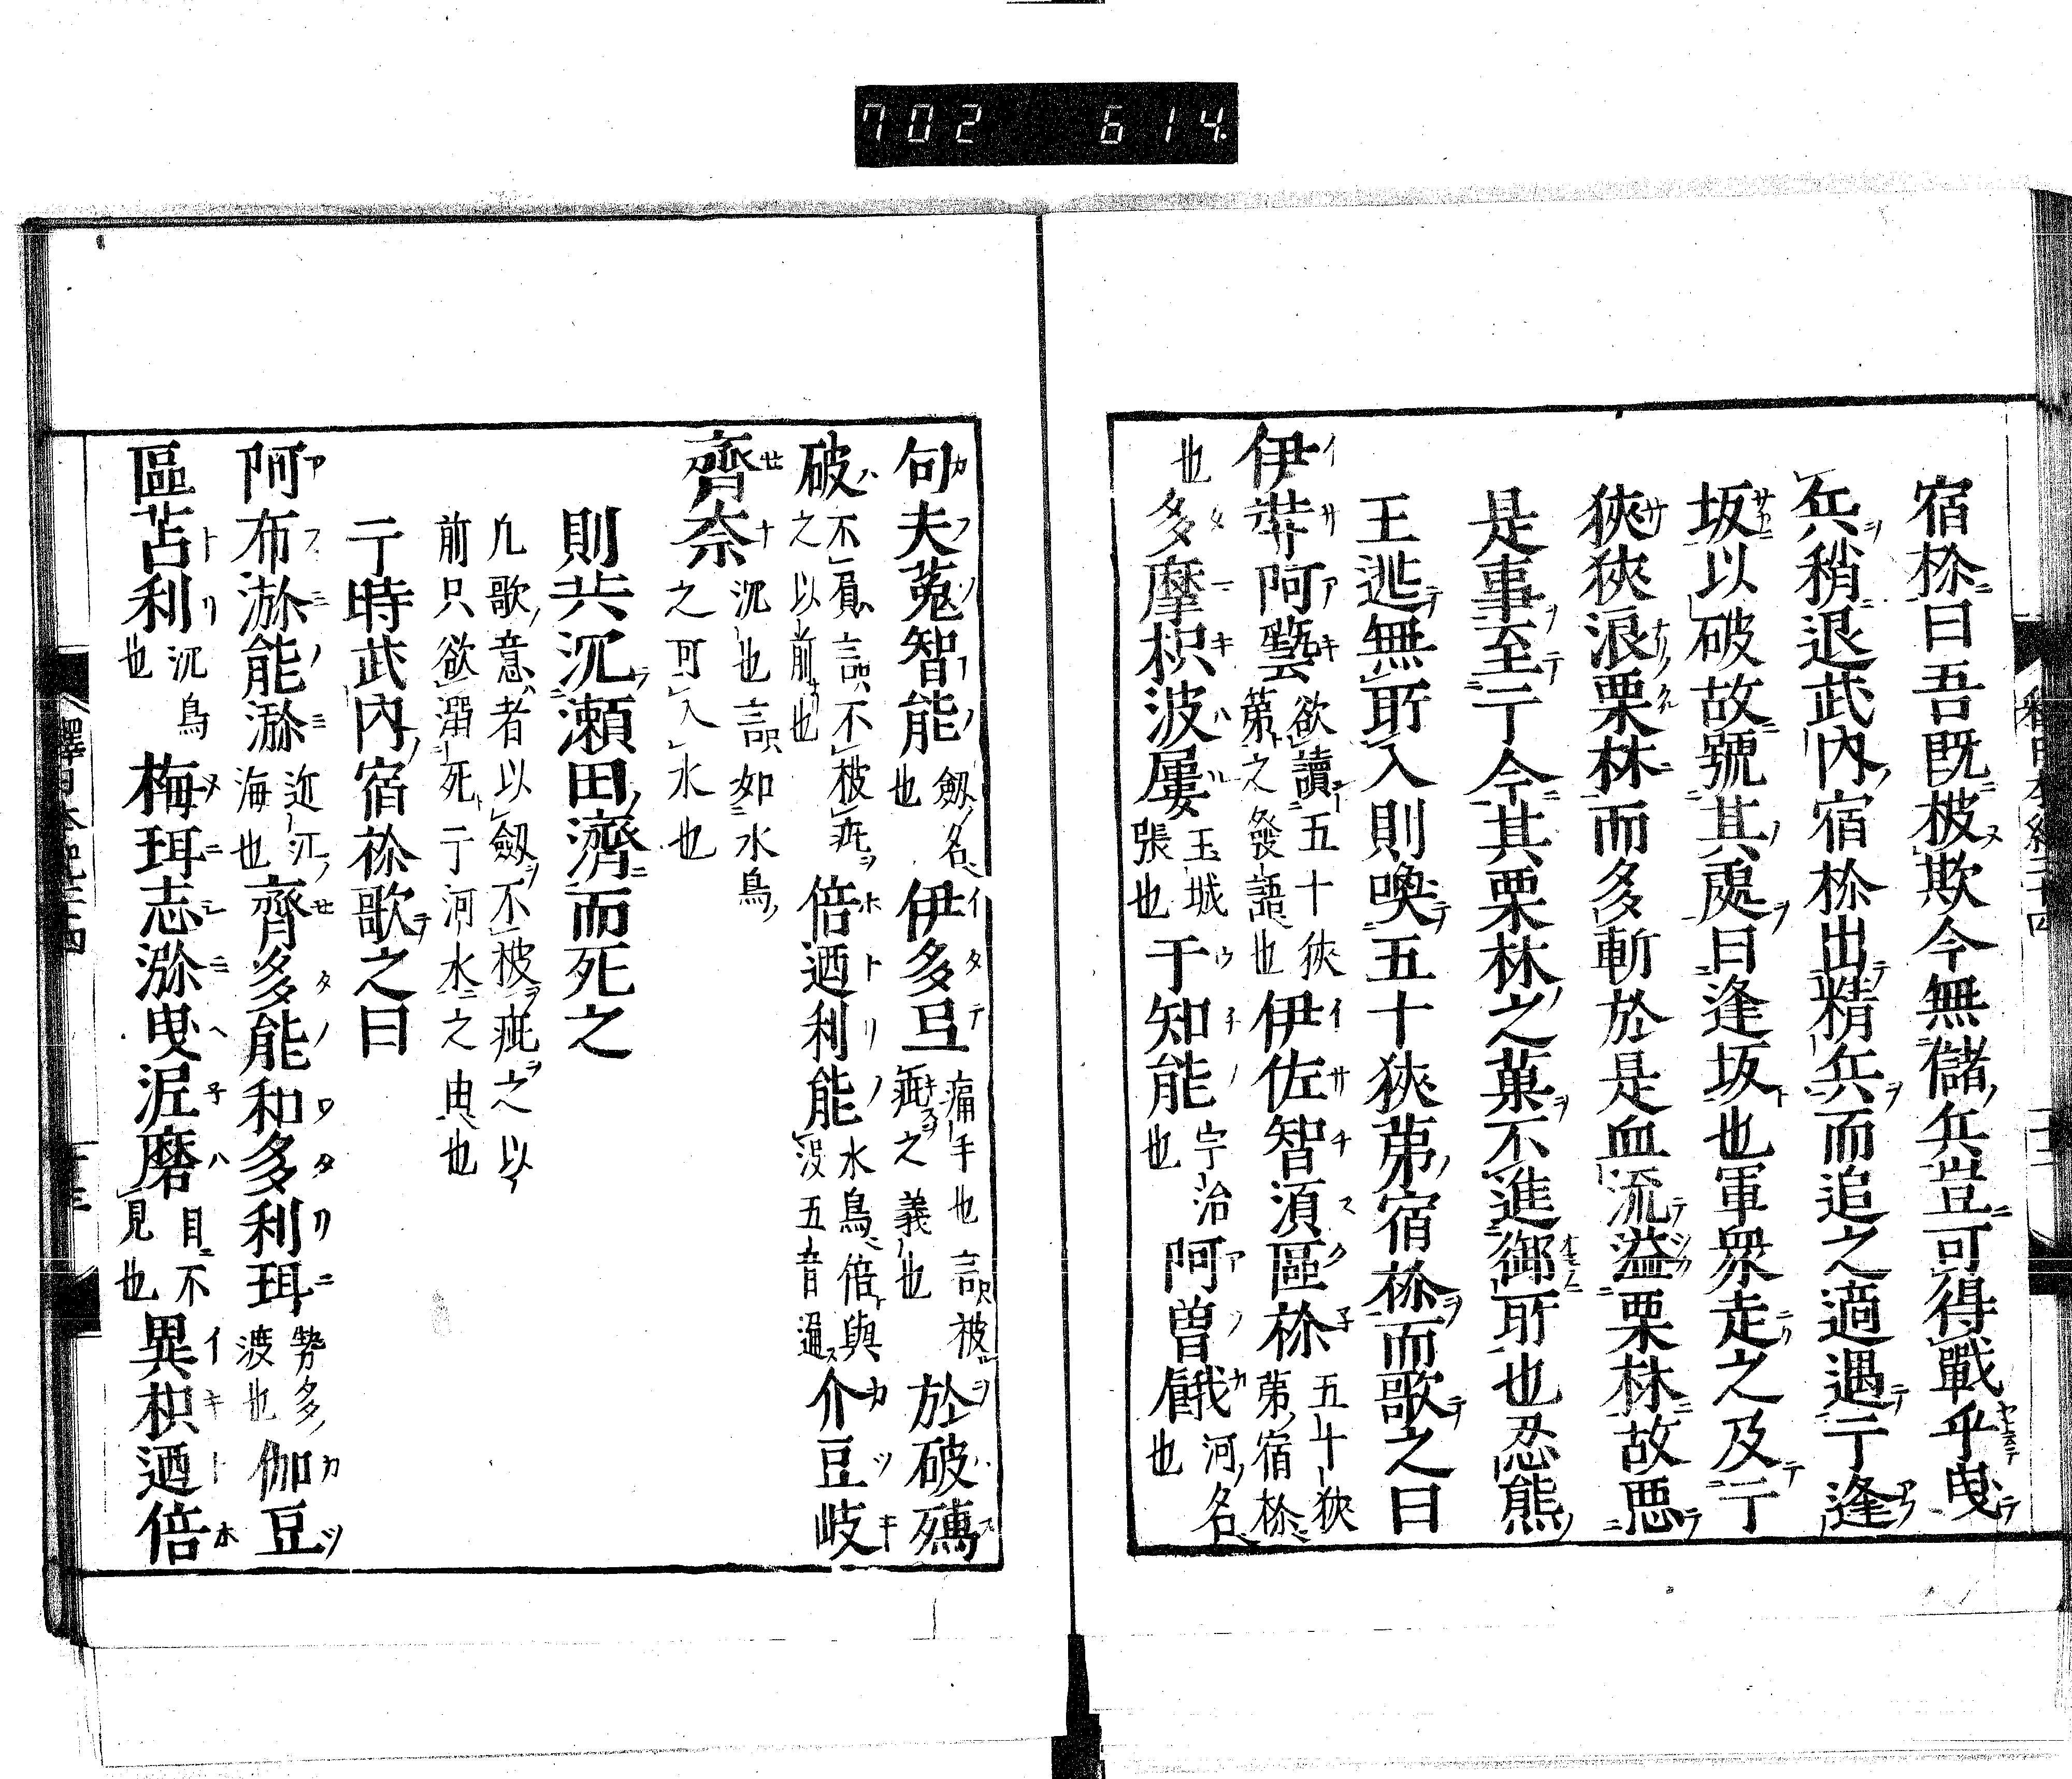 702 614
宿祢曰吾既被欺今無儲兵豈可得戰乎曳
兵稍退武内宿祢出精兵而追之適遇于逢
坂以破故號其處曰逢坂也軍衆走之及于
狹狹浪栗林而多斬於是血流溢栗林故惡
是事至于今其栗林之菓不進御所也忍熊
王逃無所入則喚五十狹茅宿祢而歌之曰
伊弉阿藝 欲讀五十狹茅之發語也 伊佐智湏區祢 五十狹茅宿祢
也 多摩枳波屢 玉城張也 于知能 宇治也 阿曽餓 河名也
句夫菟智能 劔名也 伊多豆 痛手也言被疵之義也 於破孺
破 不負言不被疵之以前也 倍迺利能 水鳥倍與没五音通 介豆岐
齊奈 沉也言如水鳥之可入水也
則共沉瀬田濟而死之
凢歌意者以劔不被疵之以
前只欲溺死于河水之由也
于時武内宿祢歌之曰
阿布瀰能瀰 近江海也 齊多能和多利珥 勢多渡也 伽豆
區苫利 沉鳥也 梅珥志瀰曳泥磨 目不見也 異枳迺倍
釋日本紀二十四